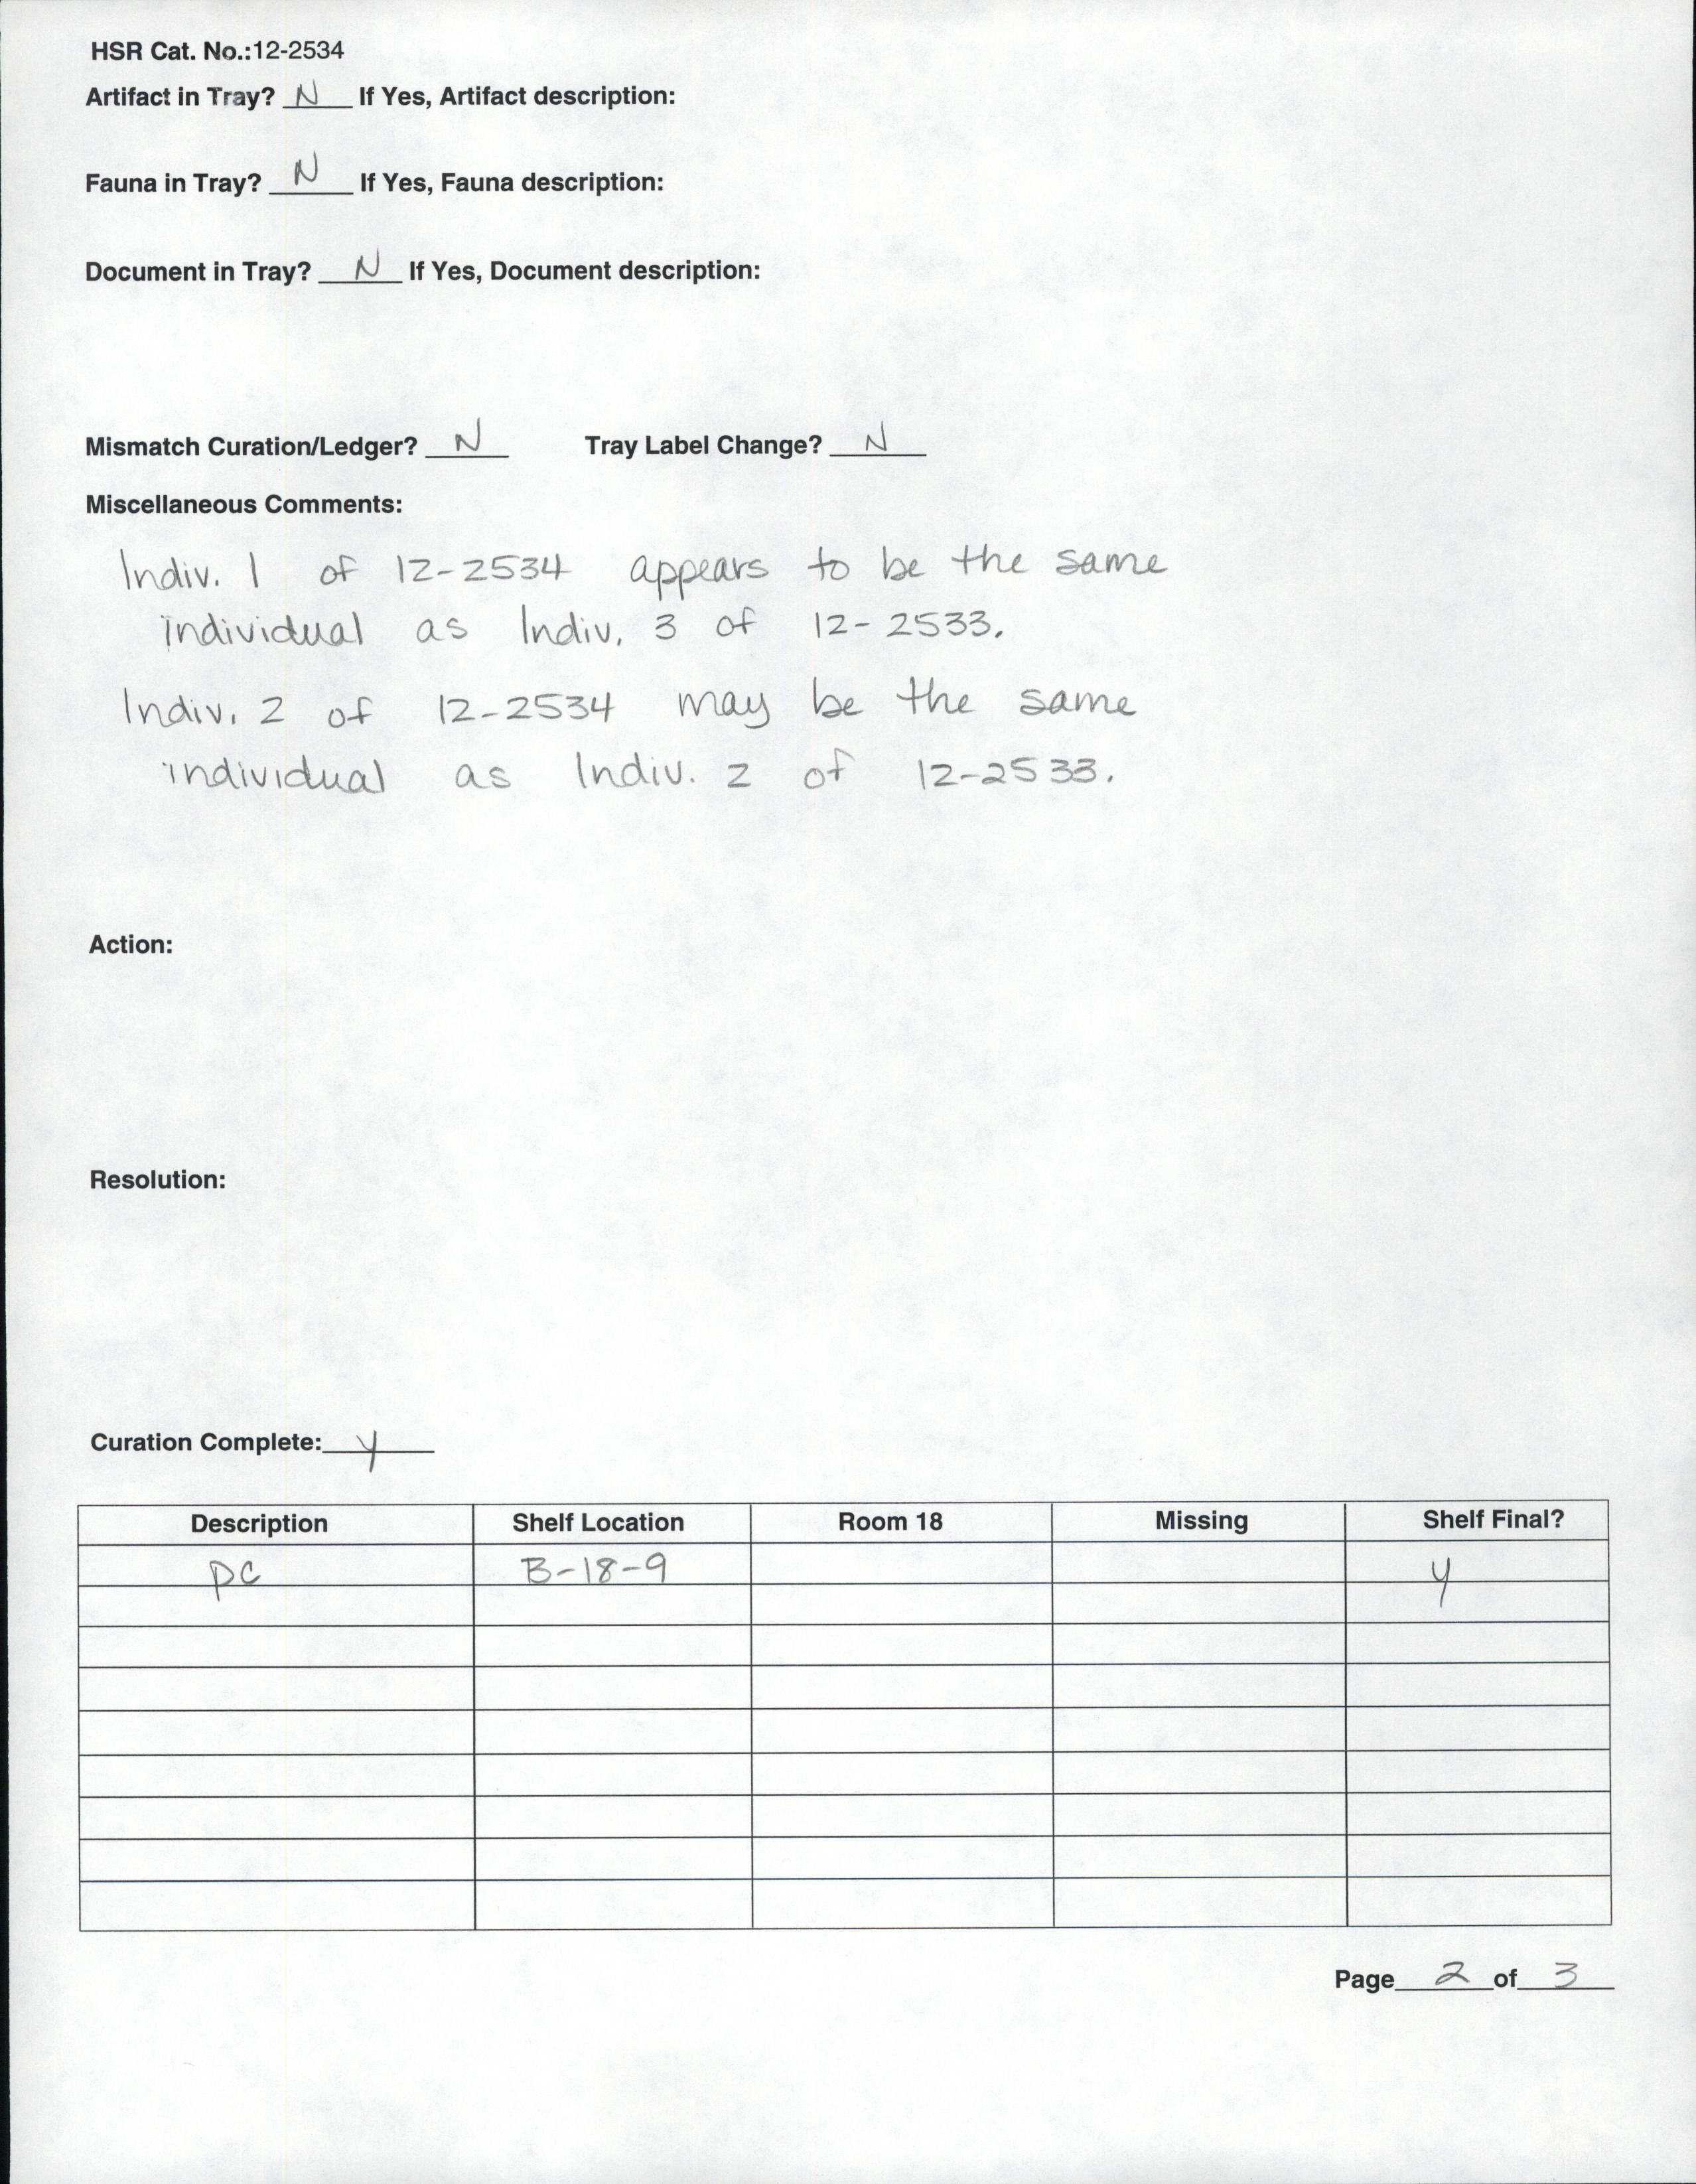 HSR Cat. No.:12-2534
Artifact in Tray? N If Yes, Artifact description:
Fauna in Tray? N If Yes, Fauna description:
Document in Tray? N If Yes, Document description:
Mismatch Curation/Ledger? N Tray Label Change? N
Miscellaneous Comments:
Indiv. 1 of 12-2534 appears to be the same
individual as Indiv. 3 of 12-2533.
Indiv. 2 of 12-2534 may be the same
individual as Indiv. 2 of 12-2533.
Action:
Resolution:
Curation Complete: y
Description Shelf Location Room 18 Missing Shelf Final?
pc B-18-9 y
Page 2 of 3